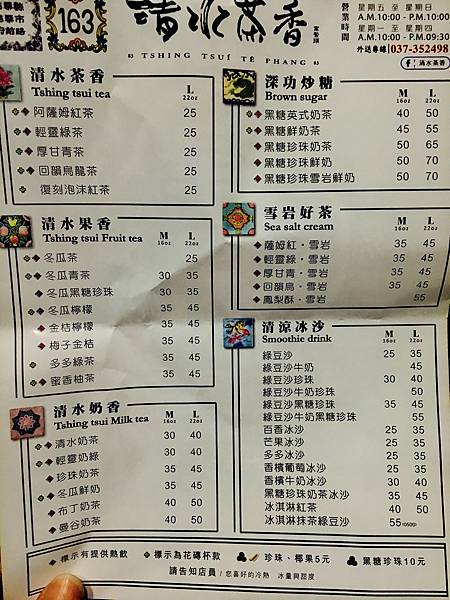 163
清水茶香
TSHING TSUÍ TÊ PHANG
營業時間
星期五 至 星期日
A.M.10:00 - P.M.10:00
星期一 至 星期四
A.M.10:00 - P.M.09:30
外送專線 037-352498
清水茶香
清水茶香 L
Tshing tsui tea 22oz
阿薩姆紅茶 25
輕靈綠茶 25
厚甘青茶 25
回韻烏龍茶 25
復刻泡沫紅茶 25
清水果香 M L
Tshing tsui Fruit tea 16oz 22oz
冬瓜茶 25
冬瓜青茶 30 35
冬瓜黑糖珍珠 30 35
冬瓜檸檬 35 45
金桔檸檬 35 45
梅子金桔 35 45
多多綠茶 35 45
蜜香柚茶 35 45
清水奶香 M L
Tshing tsui Milk tea 16oz 22oz
清水奶茶 30 40
輕靈奶綠 30 40
珍珠奶茶 35 45
冬瓜鮮奶 35 45
布丁奶茶 40 50
曼谷奶茶 40 50
深功炒糖 M L
Brown sugar 16oz 22oz
黑糖英式奶茶 40 50
黑糖鮮奶茶 45 55
黑糖珍珠奶茶 50 65
黑糖珍珠鮮奶 50 70
黑糖珍珠雪岩鮮奶 50 70
雪岩好茶 M L
Sea salt cream 16oz 22oz
薩姆紅．雪岩 35 45
輕靈綠．雪岩 35 45
厚甘青．雪岩 35 45
回韻烏．雪岩 35 45
鳳梨酥．雪岩 55
清涼冰沙 M L
Smoothie drink 16oz 22oz
綠豆沙 25 35
綠豆沙牛奶 45
綠豆沙珍珠 30 40
綠豆沙牛奶珍珠 50
綠豆沙黑糖珍珠 35 45
綠豆沙牛奶黑糖珍珠 55
百香冰沙 25 35
芒果冰沙 25 35
多多冰沙 25 35
香檳葡萄冰沙 25 35
香檳牛奶冰沙 30 40
黑糖珍珠奶茶冰沙 35 45
冰淇淋紅茶 40 50
冰淇淋抹茶綠豆沙 55(050G)
標示有提供熱飲 標示為花磚杯款 珍珠、椰果5元 黑糖珍珠10元
請告知店員 / 您喜好的冷熱 冰量與甜度